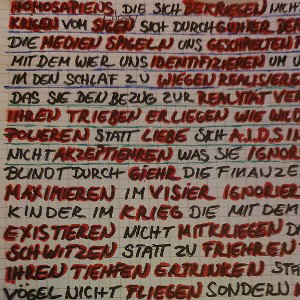 HOMOSAPIENS, DIE SICH BEKRIEGEN NICHT
KRIGEN VOM SICH DURCH
DIE MEDIEN SPIGELN UNS GESPALTEN
MIT DEM WIER UNS IDENTIFIZIEREN UM U
IN DEN SCHLAF ZU WIEGEN REALISIERE
DAS SIE DEN BEZUG ZUR REALYTÄT VE
IHREN TRIEBEN ERLIEGEN WIE WILD
POLIEREN STATT LIEBE SICH A.I.D.S
NICHT AKZEPTIEHREN WAS SIE IGNORI
BLINDT DURCH GIEHR DIE FINANZE
MAXIMIEREN IM VISIER IGNORIER
KINDER IM KRIEG DIE MIT DEM
EXISTIEREN NICHT MITKRIEGEN DA
SCHWITZEN STATT ZU FRIEHREN
IHREN TIEHFEN ERTRINKEN STE
VÖGEL NICHT FLIEGEN SONDERN